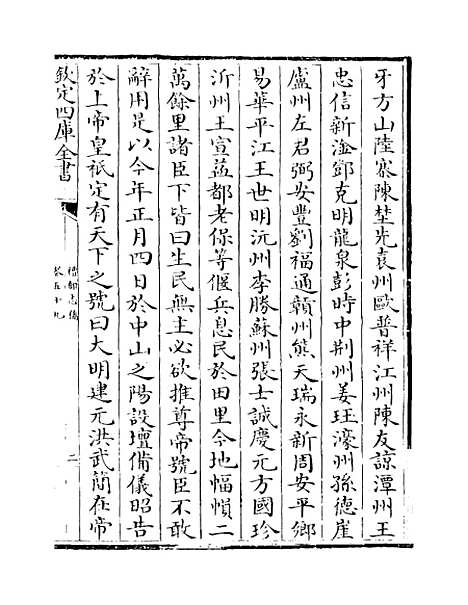 牙方山陸寨陳埜先袁州歐普祥江州陳友諒潭州王
忠信新淦鄧克明龍泉彭時中荆州姜珏濠州孫德崖
盧州左君弼安豐劉福通贛州熊天瑞永新周安平鄉
易華平江王世明沅州李勝蘇州張士誠慶元方國珍
沂州王宣益都老保等偃兵息民於田里今地幅㡇二
萬餘里諸臣下皆曰生民無主必欲推尊帝號臣不敢
辭用是以今年正月四日於中山之陽設壇備儀昭告
於上帝皇祇定有天下之號曰大明建元洪武簡在帝
欽定四庫全書
禮部志稿
卷五十九
二